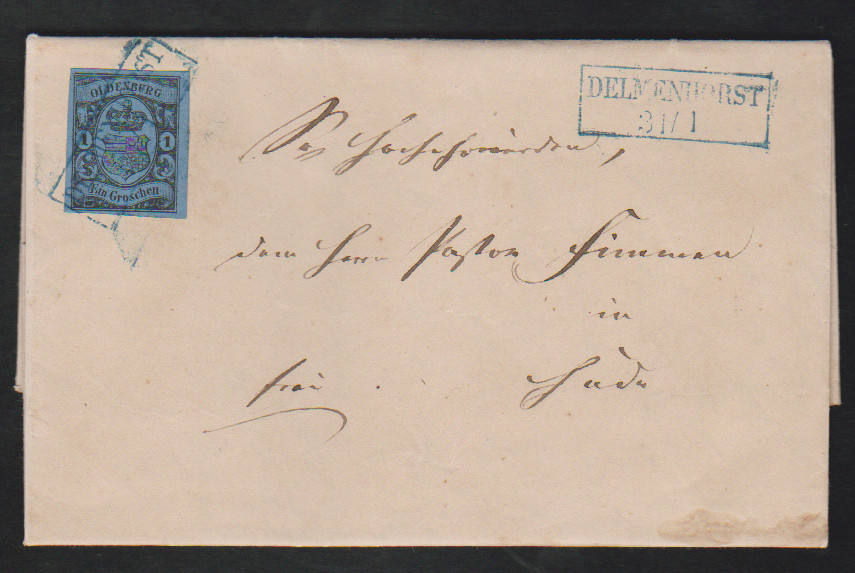 OLDENBURG
1 1
Ein Groschen
ST
DELMENHORST
31/1
Sr Hochehrwürden,
dem Herrn Pastor Fimmen
in
frei Hude